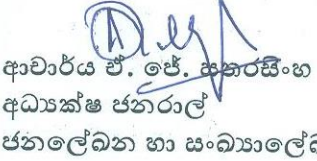 ආචාර්ය ඒ. ජේ. සතරසිංහ
අධ්‍යක්ෂ ජනරාල්
ජනලේඛන හා සංඛ්‍යාලේඛ